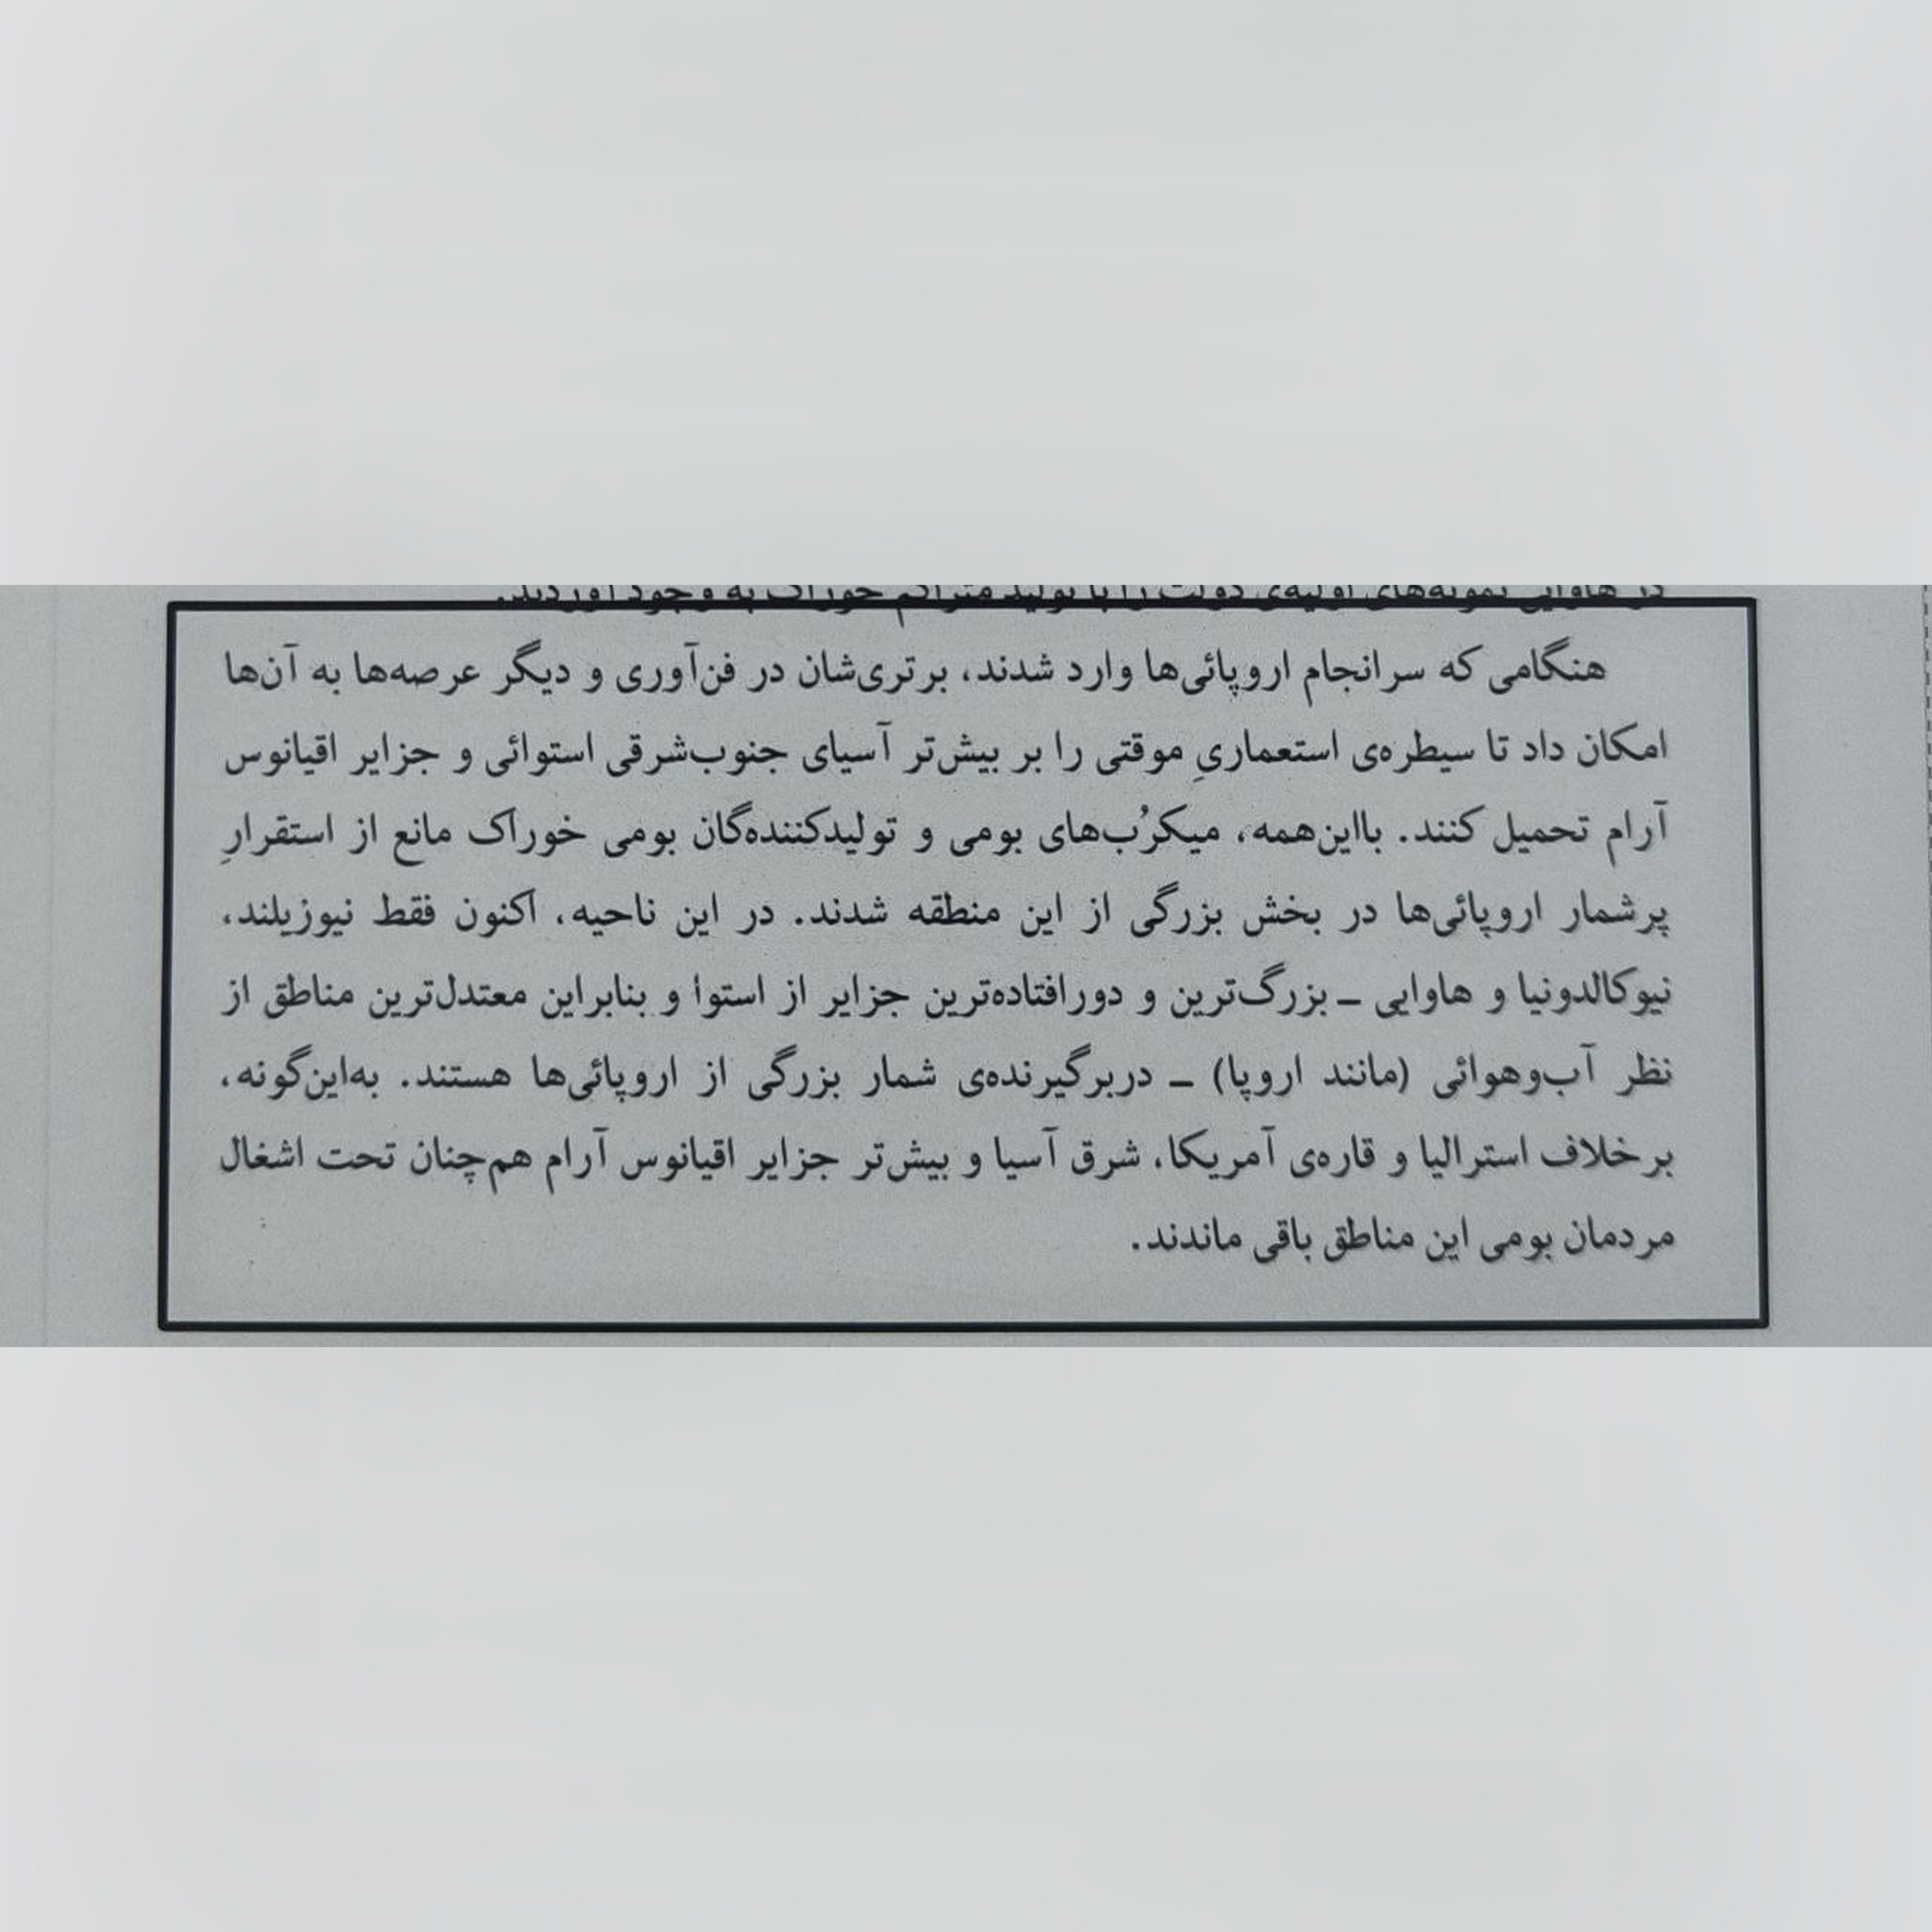 در هاوایی نمونه‌های اولیه‌ی دولت را با تولید متراکم خوراک به وجود آوردند.
هنگامی که سرانجام اروپائی‌ها وارد شدند، برتری‌شان در فن‌آوری و دیگر عرصه‌ها به آن‌ها
امکان داد تا سیطره‌ی استعماریِ موقتی را بر بیش‌تر آسیای جنوب‌شرقی استوائی و جزایر اقیانوس
آرام تحمیل کنند. بااین‌همه، میکرُب‌های بومی و تولیدکننده‌گان بومی خوراک مانع از استقرارِ
پرشمار اروپائی‌ها در بخش بزرگی از این منطقه شدند. در این ناحیه، اکنون فقط نیوزیلند،
نیوکالدونیا و هاوایی ـ بزرگ‌ترین و دورافتاده‌ترین جزایر از استوا و بنابراین معتدل‌ترین مناطق از
نظر آب‌وهوائی (مانند اروپا) ـ دربرگیرنده‌ی شمار بزرگی از اروپائی‌ها هستند. به‌این‌گونه،
برخلاف استرالیا و قاره‌ی آمریکا، شرق آسیا و بیش‌تر جزایر اقیانوس آرام هم‌چنان تحت اشغال
مردمان بومی این مناطق باقی ماندند.